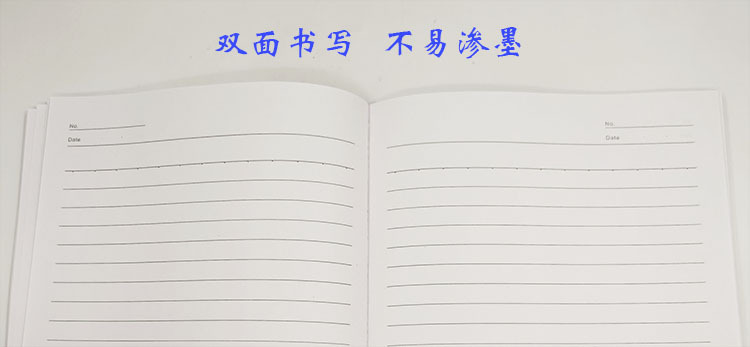 双面书写 不易渗墨
No.
Date
No.
Date